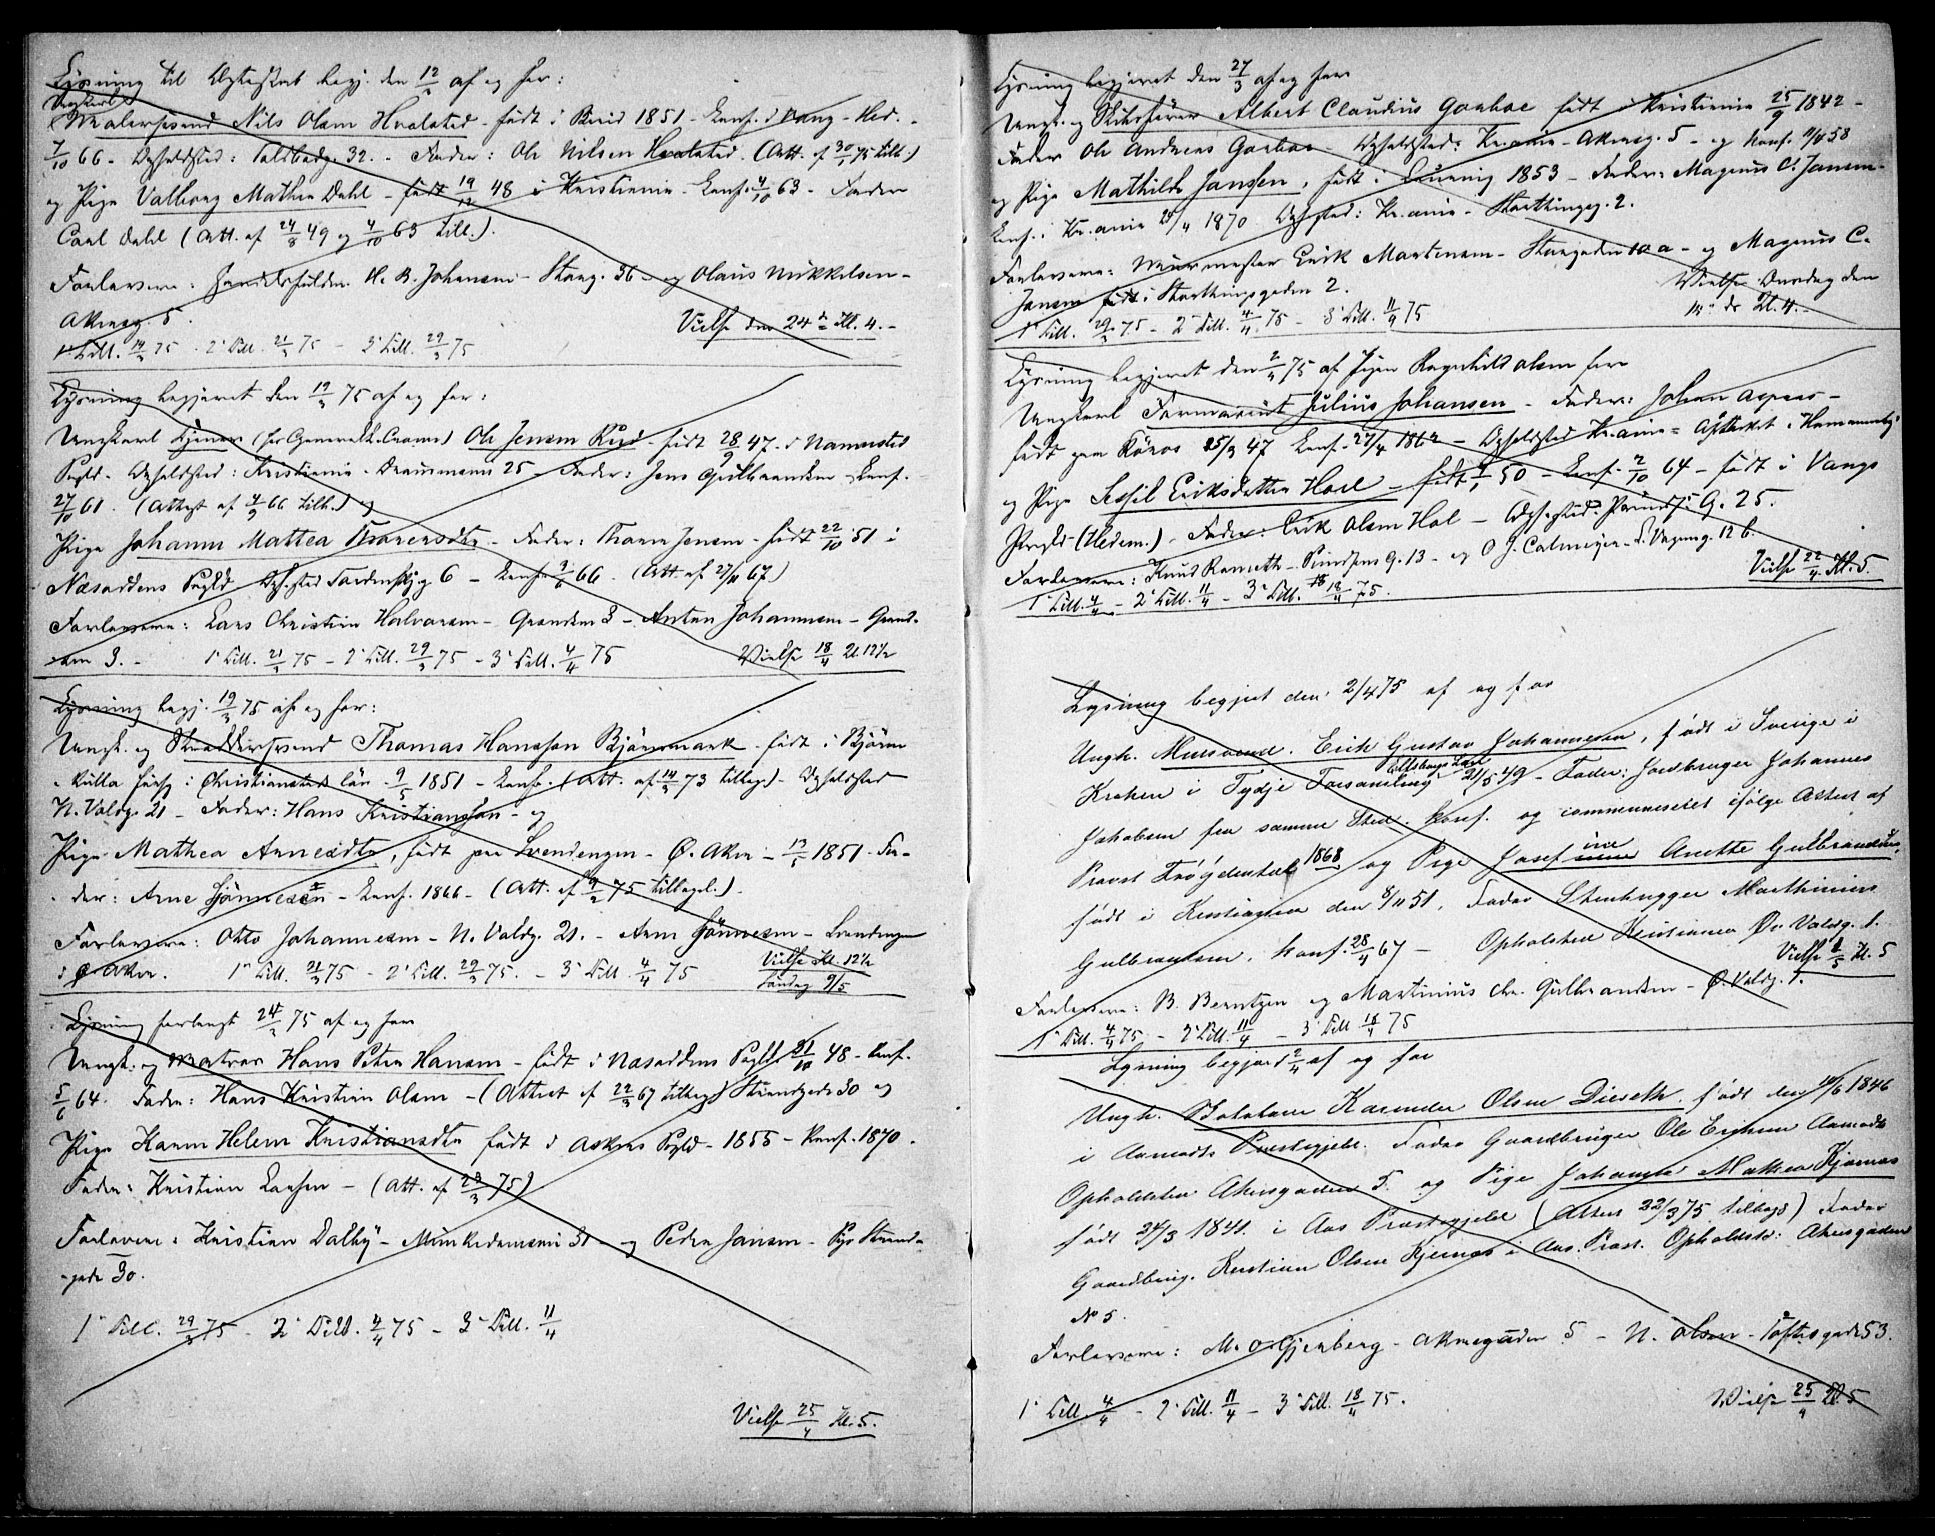 Lysning til Ægteskab begj. den 12/3 af og for:
Ungkarl
Malersvend Nils Olsen Hvalsted - født i Biri 1851 - Conf. i Vang - Hed. -
7/10 66 - Opholdsted: Toldbodg. 32. - Fader: Ole Nilsen Hvalsted. (Att. af 30/1 75 till.)
og Pige Valborg Mathea Dahl - født 19/12 48 i Kristiania - Conf. 4/10 63 - Fader
Carl Dahl (Att. af 24/8 49 og 4/10 63 till.).
Forlovere: H. B. Johansen - Storg. 36 - og Olaus Mikkelsen -
Akersg. 5.
Vielse den 24de Kl. 4. -
1' Till. 14/3 75 - 2' Till. 21/3 75 - 3' Till. 29/3 75
Lysning begjæret den 19/3 75 af og for:
Ungkarl Tjener Ole Jensen Rud - født 28/9 47 i Nannestad
Pgld - Opholdsted: Kristiania - 25 - Fader: Jens Gulbrandsen - Conf.
27/10 61. (Attest af 4/9 66 till.) og
Pige Johanne Mattea Thorersdtr - Fader: Thorer Jensen - født 22/10 51 i
Næsoddens Pgld Opholdsted 6 - Conf. 66. (Att. af 27/11 67.)
Forlovere: Lars Christian Halvorsen - Grændsen 3 - Anton Johannesen - Grænd-
sen 3. - 1' Till. 21/3 75 - 2' Till. 29/3 75 - 3' Till. 4/4 75 Vielse 18/4 Kl. 12½
Lysning begj. 19/3 75 af og for:
Ungk. og Skræddersvend Thomas Hansson Björnmark - født i
i Christianstad län 9/5 1851 - Conf. (Att. af 14/3 73 tillagt) - Opholdsted
N. Voldg. 21 - Fader: Hans Kristiansson - og
Pige Mathea Arnesdtr, født paa Svendengen - Ø. Aker - 1851 - Fa-
der: Arne - Conf. 1866 - (Att. af 9/2 75 tillagt.)
Forlovere: Otto Johannesen - N. Voldg. 21. - Arne - Svendengen
i Ø. Aker. 1' Till. 21/3 75 - 2' Till. 29/3 75. - 3' Till. 4/4 75 Vielse Kl. 12½
Søndag 9/5
Lysning forlangt 24/3 75 af og for
Ungk. og Matros Hans Peter Hansen - født i Næsoddens Pgld 31/10 48 - Conf.
5/6 64. Fader: Hans Kristian Olsen - (Attest af 22/3 67 tillagt) Strandgade 30 og
Pige Karen Helene Kristiansdtr født i Askers Pgld - 1855 - Conf. 1870.
Fader: Kristian Larsen - (Att. af 23/3 75)
Forlovere: Kristian Dalby - Munkedamsvei 31 - og Peder Jansen - Strand-
gade 30.
1' Till. 29/3 75 - 2' Till. 4/4 75 - 3' Till. 11/4
Vielse 25/4 Kl. 5.
Lysning begjæret den 27/3 af og for
Ungk. og Skibsfører Albert Claudius Gorboe født i Kristiania 25/9 1842 -
Fader Ole Andreas Gorboe - Opholdsted: Kr.ania - Akersg. 5 - og Conf. 58
og Pige Mathilde Janssen, født i 1853 - Fader: Magnus C. Jansen -
Conf. i Kr.ania 24/4 1870 Opholdsted: Kr.ania - Storthingsg. 2.
Forlovere: Murmester Erik Mortensen - Storgaden 10 a - og Magnus C.
Jansen i Storthingsgaden 2. Vielse Onsdag den
14de ds Kl. 4. -
1' Till. 29/3 75 - 2' Till. 4/4 75 - 3' Till. 11/4 75
Lysning begjæret den 2/4 75 af Pigen Ragnhild Olsen for
Ungkarl Farmaceut Julius Johansen - Fader: Johan Aspaas -
født paa Röros 25/3 47 Conf. 27/4 1862 - Opholdsted Kr.ania =
og Pige Sessil Eriksdatter Hoel - født 50 - Conf. 2/10 64 - født i Vangs
Prgld - (Hedem.) - Fader: Erik Olsen Hol - Opholdsted: Prinds. G. 25.
Forlovere: Knud Ramseth - Prindsens G. 13 - og O. J. Calmeyer - 12 b.
Vielse 22/4 Kl. 5.
1' Till. 4/4 - 2' Till. 11/4 - 3' Till. 18/4 75.
Lysning begjært den 2/4 75 af og for
Ungk. Mursvend. Erik Gustav Johannesen, født i Sverige i
Elfsborgs Län
Kroken i Tydje Forsamling 21/5 49 - Fader: Jordbruger Johannes
Jakobsen fra samme Sted. Konf. og communiceret ifølge Attest af
Provst 1868 og Pige Josefine Anette Gulbrandsen,
født i Kristiania den 8/11 51, Fader Stenhugger Marthinius
Gulbrandsen, Konf. 28/4 67 - Opholdsted Kristiania Øv. Voldg. 1.
Vielse 1/5 Kl. 5
Forlovere: B. Berntzen og Martinius Chr. Gulbrandsen - Ø. Voldg. 1.
1' Till. 4/4 75 - 2' Till. 11/4 - 3' Till 18/4 75
Lysning begjært 2/4 af og for
Ungk. Karinder Olsen Dieseth født den 10/6 1846
i Aamodts Præstegjeld. Fader Gaardbruger Ole Eriksen Aamodt
Opholdsted Akersgaden 5. og Pige Johanne Mathea Kjærnes
født 24/3 1841. i Aas Præstegjeld (Attest 22/3 75 tillagt) Fader
Gaardbrug. Kristian Olsen Kjernes i Aas Præst. Opholdsted: Akersgaden
No 5.
Forlovere: M. O. Gjerberg - Akersgaden 5 - N. Olsen - Toftesgade 53.
1' Till 4/4 - 2' Till. 11/4 - 3' Till. 18/4 75. Vielse 25/4 Kl. 5